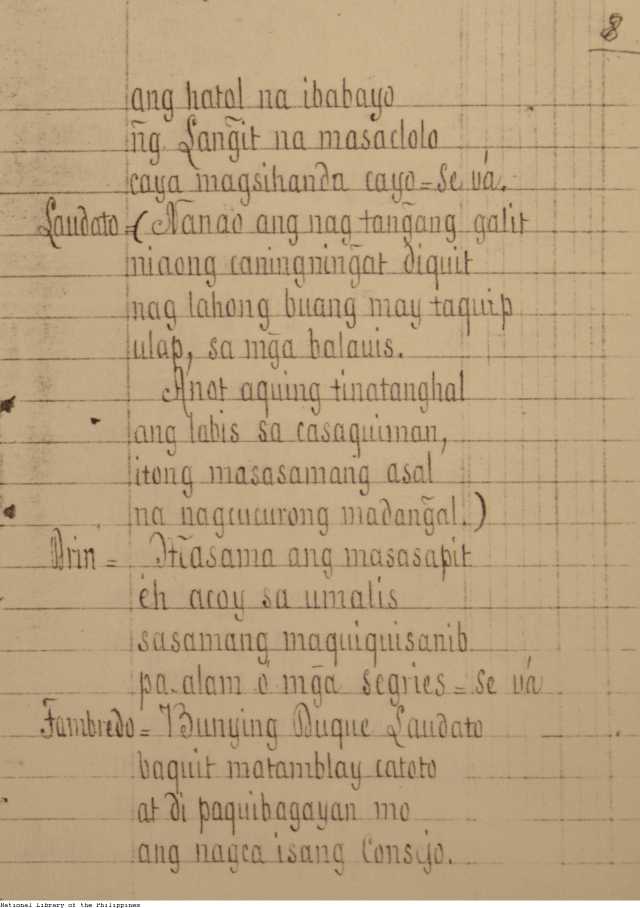 8
ang hatol na ibabayo
n͠g Lang͠it na masaclolo
caya magsihanda cayo = se vá.
Laudato = ( Nanao ang nag tang͠ang galit
niaong caningning͠at diquit
nag lahong buang may taquip
ulap, sa mg͠a balauis.
Anot aquing tinatanghal
ang labis sa casaquiman,
itong masasamang asal
na nagcucurong madang͠al.)
Prin = Masama ang masasapit
eh acoy sa umalis
sasamang maquiquisanib
pa-alam ó mg͠a segries = se vá
Fambredo = Bunying Duque Laudato
baquit matamblay catoto
at di paquibagayan mo
ang nagca isang Consejo.
National Library of the Philippines